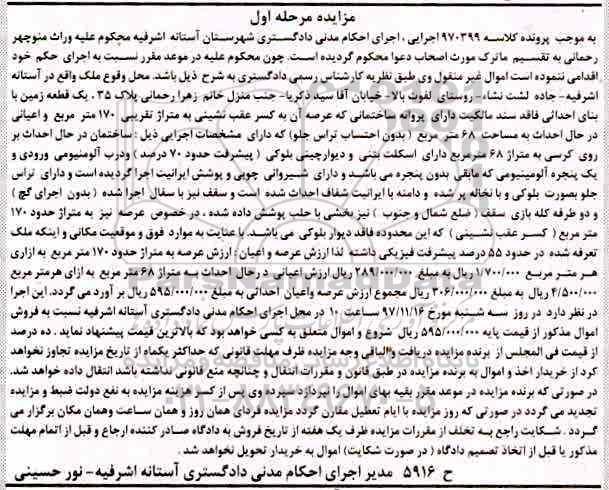 مزایده مرحله اول
به موجب پرونده کلاسه ۹۷۰۳۹۹ اجرایی ، اجرای احکام مدنی دادگستری شهرستان آستانه اشرفیه محکوم علیه وراث منوچهر
رحمانی به تقسیم ماترک مورث اصحاب دعوا محکوم گردیده است. چون محکوم علیه در موعد مقرر نسبت به اجرای حکم خود
اقدامی ننموده است اموال غیر منقول وی طبق نظریه کارشناس رسمی دادگستری به شرح ذیل باشد. محل وقوع ملک واقع در آستانه
اشرفیه- جاده لشت نشاء- روستای لفوت بالا- خیابان آقا سید ذکریا- جنب منزل خانم زهرا رحمانی پلاک ۳۵ . یک قطعه زمین با
بنای احداثی فاقد سند مالکیت دارای پروانه ساختمانی که عرصه آن به کسر عقب نشینی به متراژ تقریبی ۱۷۰ متر مربع و اعیانی
در حال احداث به مساحت ۶۸ متر مربع ( بدون احتساب تراس جلو) که دارای مشخصات اجرایی ذیل : ساختمان در حال احداث بر
روی کرسی به متراژ ۶۸ مترمربع دارای اسکلت بتنی و دیوارچینی بلوکی ( پیشرفت حدود ۷۰ درصد ) ودرب آلومنیومی ورودی و
یک پنجره آلومینیومی که مابقی بدون پنجره می باشد و دارای شیروانی چوبی و پوشش ایرانیت اجرا گردیده است و دارای تراس
جلو بصورت بلوکی و با نخاله پر شده و دامنه با ایرانیت شفاف احداث شده است و سقف نیز با سفال اجرا شده ( بدون اجرای گچ )
و دو طرفه کله بازی سقف ( ضلع شمال و جنوب ) نیز بخشی با حلب پوشش داده شده ، در خصوص عرصه نیز به متراژ حدود ۱۷۰
متر مربع ( کسر عقب نشینی ) که این محدوده فاقد دیوار بلوکی می باشد. با عنایت به موارد فوق و موقعیت مکانی و اینکه ملک
تعرفه شده در حدود ۵۵ درصد پیشرفت فیزیکی داشته لذا ارزش عرصه و اعیان : ارزش عرصه به متراژ حدود ۱۷۰ متر مربع به ازاری
هر متر مربع ۱/۷۰۰/۰۰۰ ریال به مبلغ ۲۸۹/۰۰۰/۰۰۰ ریال ارزش اعیانی در حال احداث به متراژ ۶۸ متر مربع به ازای هرمتر مربع
۴/۵۰۰/۰۰۰ ریال به مبلغ ۳۰۶/۰۰۰/۰۰۰ ریال مجموع ارزش عرصه واعیان احداثی به مبلغ ۵۹۵/۰۰۰/۰۰۰ ریال بر آورد می گردد. این اجرا
در نظر دارد در روز سه شنبه مورخ ۹۷/۱۱/۱۶ ساعت ۱۰ در محل اجرای احکام مدنی دادگستری آستانه اشرفیه نسبت به فروش
اموال مذکور از قیمت پایه ۵۹۵/۰۰۰/۰۰۰ ریال شروع و اموال متعلق به کسی خواهد بود که بالاترین قیمت پیشنهاد نماید . ده درصد
از قیمت فی المجلس از برنده مزایده دریافت والباقی وجه مزایده ظرف مهلت قانونی که حداکثر یکماه از تاریخ مزایده تجاوز نخواهد
کرد از خریدار اخذ و اموال به برنده مزایده در طبق قانون و مقررات انتقال و چنانچه منع قانونی نداشته باشد انتقال داده خواهد شد.
در صورتی که برنده مزایده در موعد مقرر بقیه بهای اموال را نپردازد سپرده وی پس از کسر هزینه مزایده به نفع دولت ضبط و مزایده
تجدید می گردد در صورتی که روز مزایده با ایام تعطیل مقارن گردد مزایده فردای همان روز و همان ساعت وهمان مکان برگزار می
گردد . شکایت راجع به تخلف از مقررات مزایده ظرف یک هفته از تاریخ فروش به دادگاه صادر کننده ارجاع و قبل از اتمام مهلت
مذکور یا قبل از اتخاذ تصمیم دادگاه ( در صورت شکایت) اموال به خریدار تحویل نخواهد شد .
ح ۵۹۱۶ مدیر اجرای احکام مدنی دادگستری آستانه اشرفیه- نور حسینی